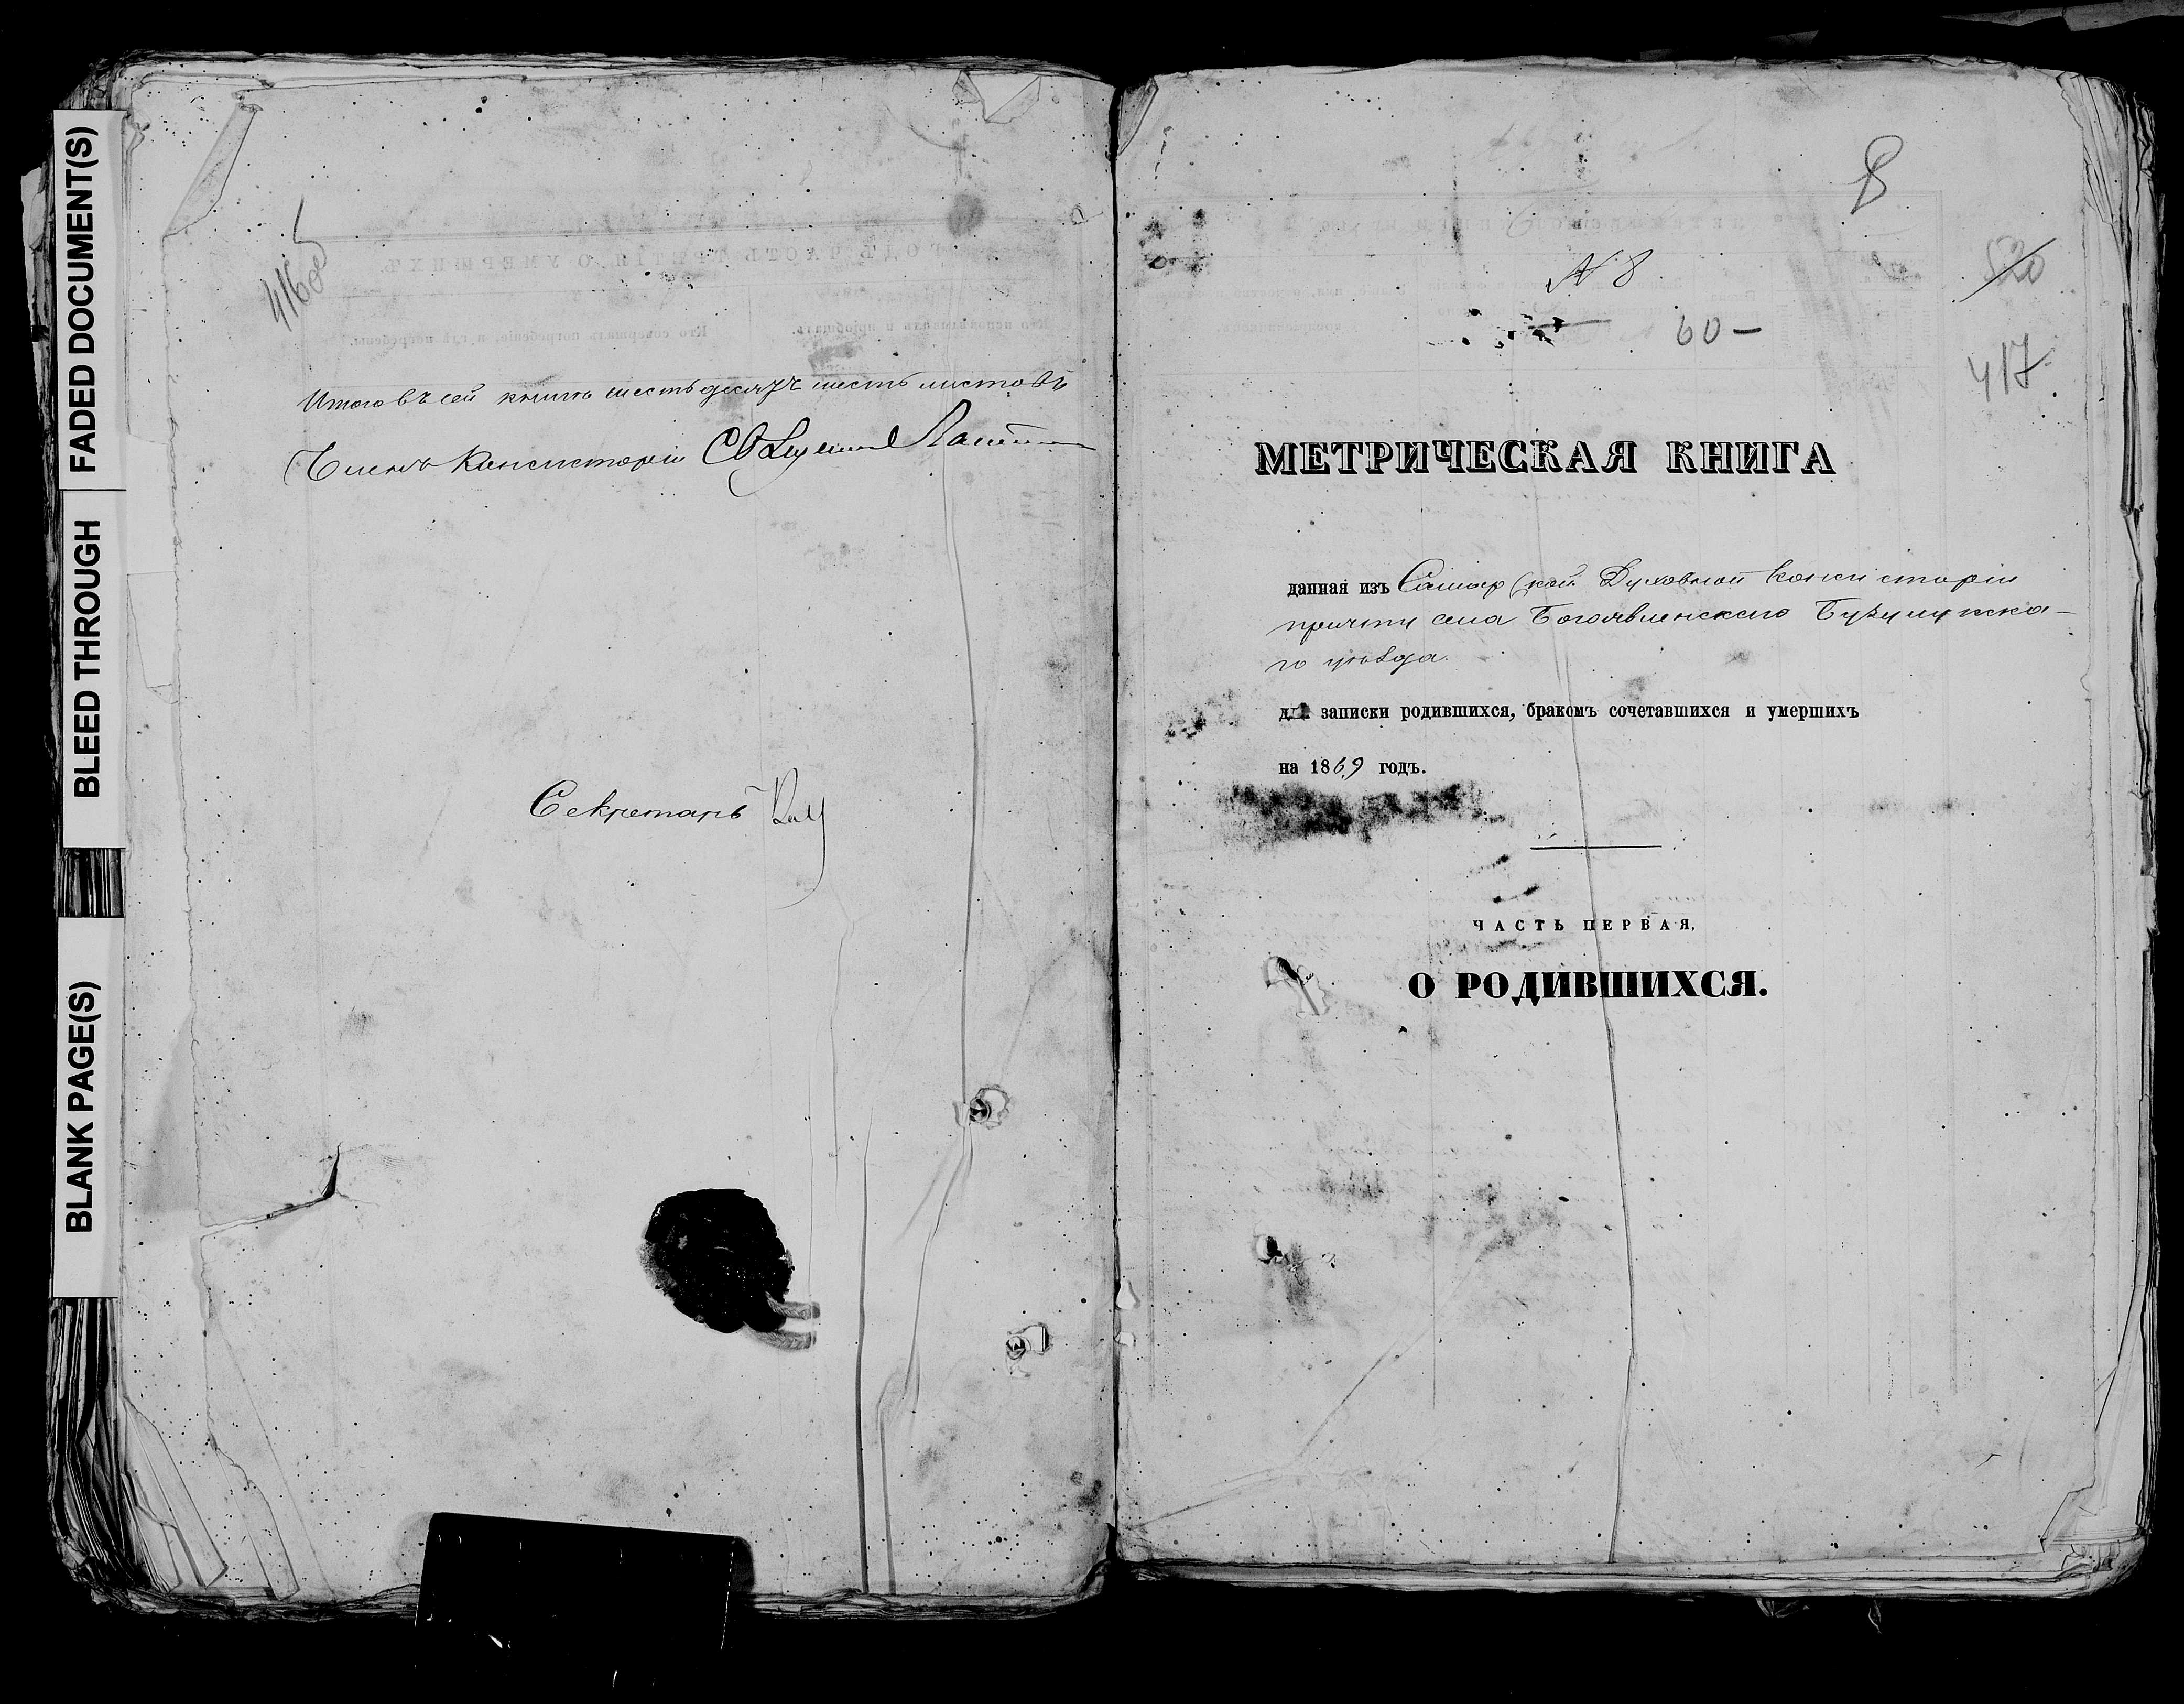 FADED DOCUMENT(S)
BLEED THROUGH
BLANK PAGE(S)
416об
Итого въ сей книгѣ шестьдесятъ шесть листовъ
Членъ Консисторіи
Секретарь
8
№ 8
60 —
520
417
МЕТРИЧЕСКАЯ КНИГА
данная изъ Самарской Духовной Консисторіи
причту села Богоявленскаго Бузулукска-
го уѣзда.
для записки родившихся, бракомъ сочетавшихся и умершихъ
на 1869 годъ.
ЧАСТЬ ПЕРВАЯ,
О РОДИВШИХСЯ.